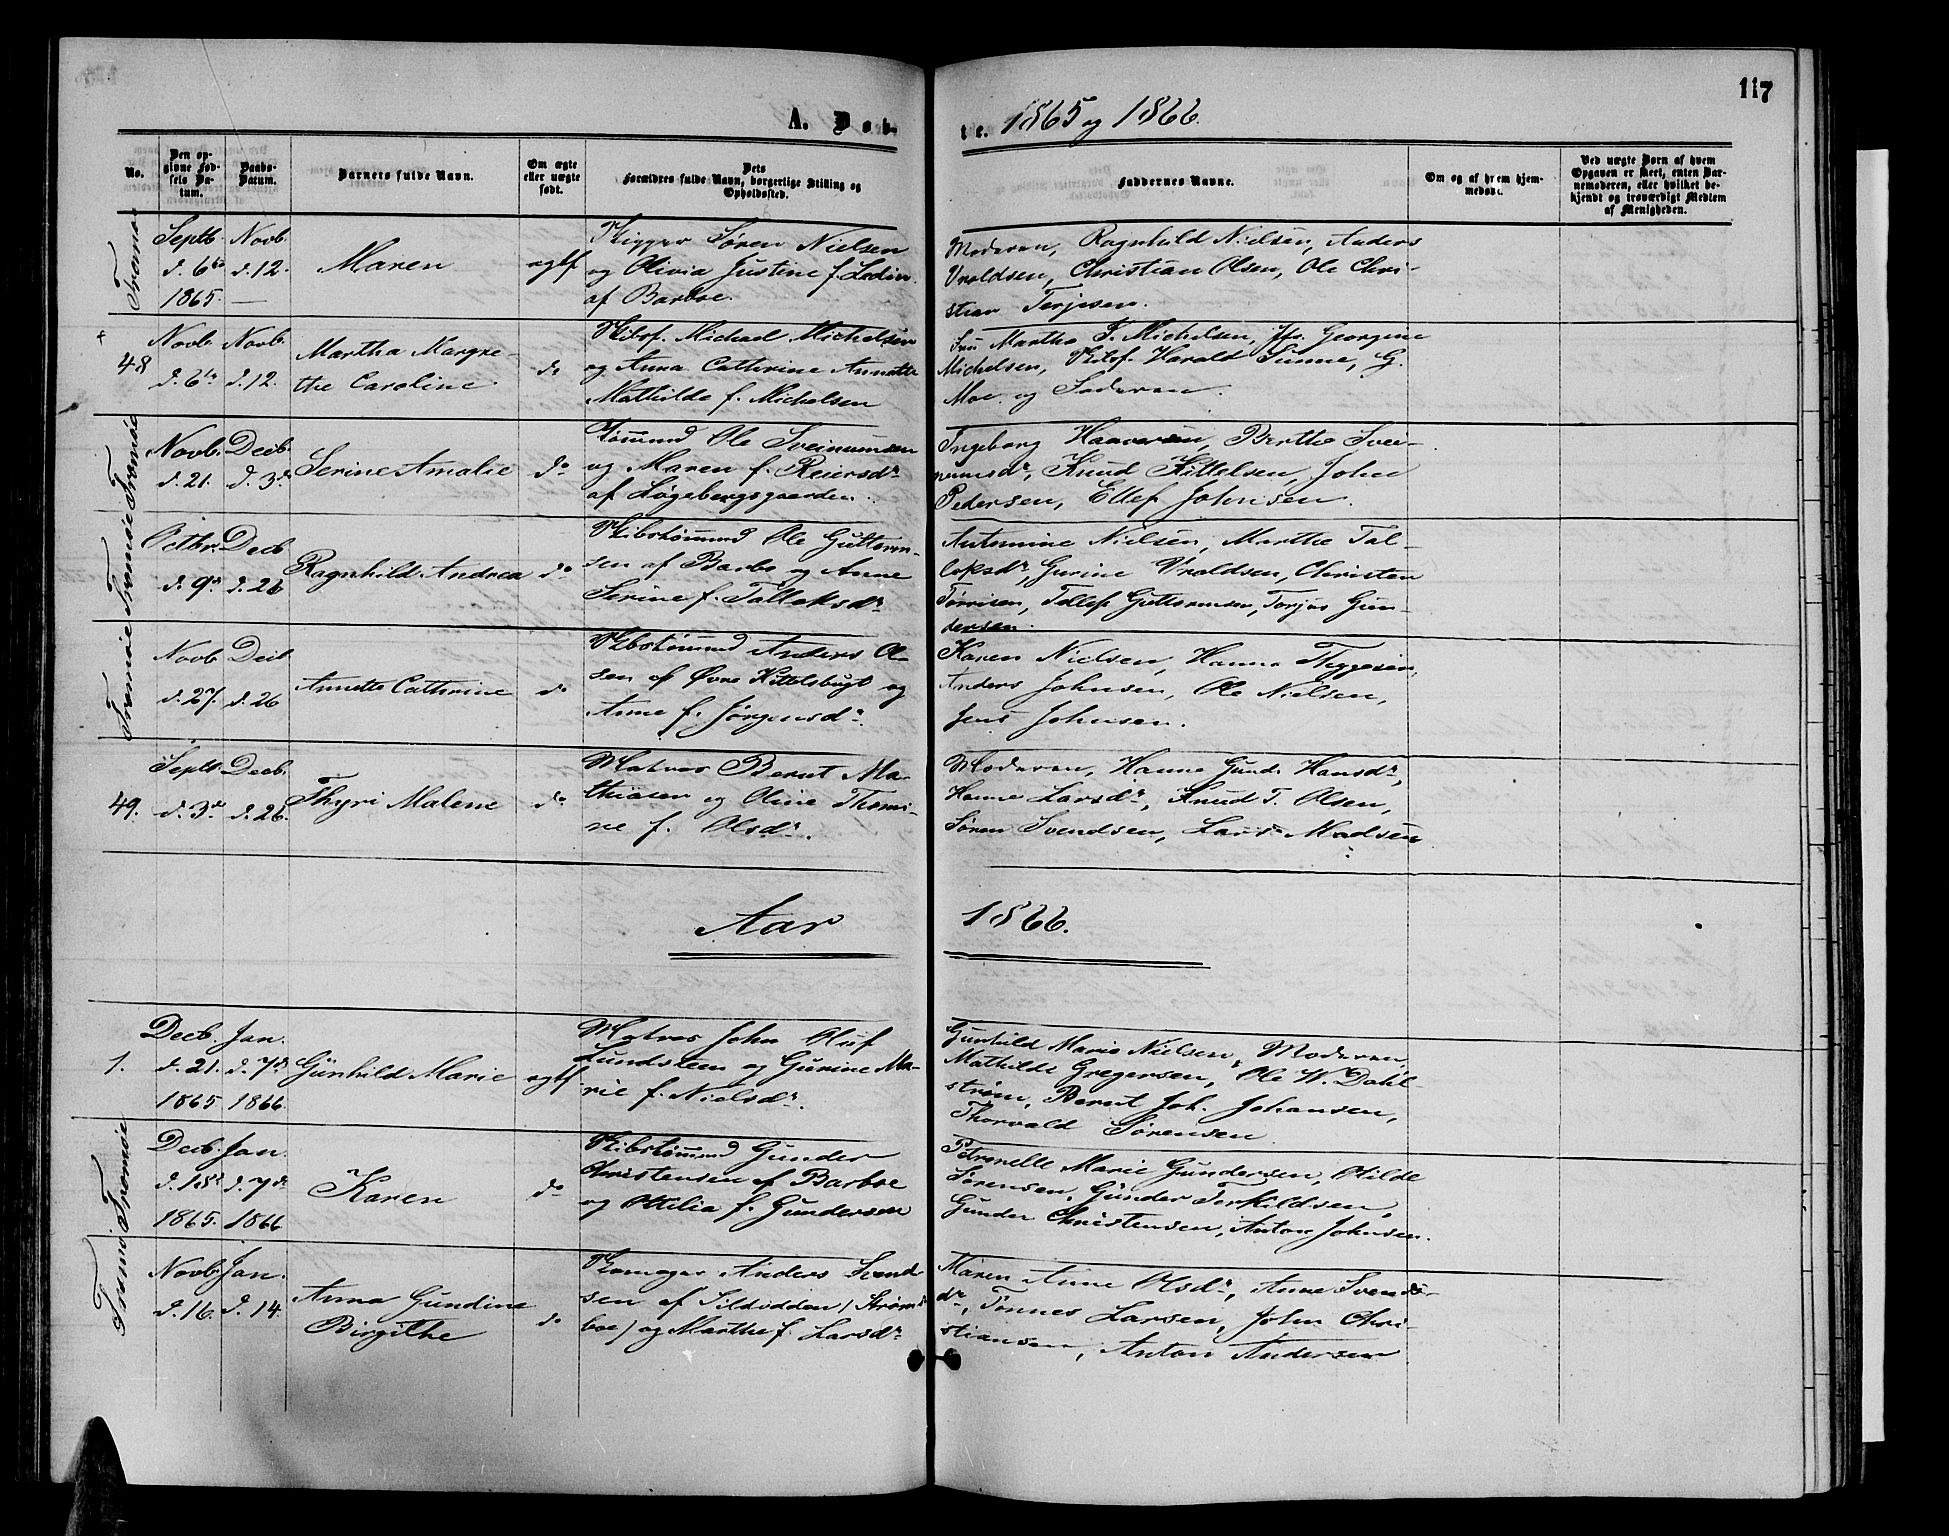 117
A. Døb-
te. 1865 og 1866.
No.
Den op-
givne Fød-
sels Da-
tum.
Daabs-
Datum.
Barnets fulde Navn.
Om ægte
eller uægte
født.
Dets
Forældres fulde Navn, borgerlige Stilling og
Opholdssted.
Faddernes Navne.
Om og af hvem hjem-
medøbt.
Ved uægte Børn af hvem
Opgaven er skeet, enten Bar-
nemoderen, eller hvilket be-
kjendt og troværdigt Medlem
af Menigheden.
Tromøe
Septb. Novb.
d. 6te d. 12.
1865. —
Maren
ægtf
Rigger Søren Nielsen
og Olivia Justine f. Ledin
af Barboe.
Moderen, Ragnhild Nielsen, Anders
Vroldsen, Christian Olsen, Ole Chri-
stian Terjesen.
48
Novb. Novb.
d. 6te d. 12.
Martha Margre-
the Caroline.
do
Skibsf. Michael Michelsen
og Anna Cathrine Annette
Mathilde f. Michelsen
Fru Martha F. Michelsen, Jfr. Georgine
Michelsen, Skibsf. Harald Sunne, G.
Moe og Faderen.
Tromøe
Novb. Decb.
d. 21. d. 3de
Serine Amalie
do
Tømmd Ole Sveinumsen
og Maren f. Reiersdr
af Løgebergsgaarden.
Ingeborg Haaversen, Berthe Svei-
numsdr, Knud Kittelsen, John
Pedersen, Ellef Johnsen.
Tromøe
Octbr. Decb
d. 9de d. 26
Ragnhild Andrea
do
Skibstømmd Ole Guttorm-
sen af Barbo og Anne
Serine f. Talleksdr
Antonine Nielsen, Marthe Tal-
leksdr, Gurine Vroldsen, Christen
Tørrisen, Tellef Guttormsen, Torjus Gun-
dersen.
Tromøe
Novb Decb
d. 27. d. 26
Annette Cathrine
do
Skibstømmd Anders Ol-
sen af Øvre Kittelsbugt og
Anne f. Jørgensdr.
Karen Nielsen, Hanna Thygesen,
Anders Johnsen, Ole Nielsen,
Jens Johnsen.
49.
Septb. Decb.
d. 3de d. 26.
Thyri Malene
do
Matros Bernt Ma-
thiasen og Oline Thomi-
ne f. Olsdr.
Moderen, Hanne Gund. Hansdr,
Hanne Larsdr, Knud T. Olsen,
Søren Svendsen, Lars Madsen
Aar 1866.
1.
Decb. Jan.
d. 21. d. 7de
1865 1866.
Gunhild Marie
ægtf
Matros John Oluf
Lundsteen og Gurine Ma-
rie f. Nielsdr.
Gunhild Marie Nielsen, Moderen,
Mathilde Gregersen, Ole W. Dahl-
strøm, Bernt Joh. Johansen,
Thorvald Sørensen
Tromøe
Decb. Jan.
d. 18de d. 7de
1865. 1866
Karen
do
Skibstømmd Gunder
Christensen af Barboe
og Ottilia f. Gundersen
Petronelle Marie Gundersen, Hilde
Sørensen, Gunder Terkildsen,
Gunder Christensen, Anton Johnsen.
Tromø
Novb. Jan.
d. 16. d. 14.
Anna Gundine
Birgithe
do
Skomager Anders Svend
sen af Sildodden (Strøms
boe) og Marthe f. Larsdr
Maren Anne Olsdr, Anne Svends-
dr, Tønnes Larsen, John Chri-
stiansen, Anton Andersen